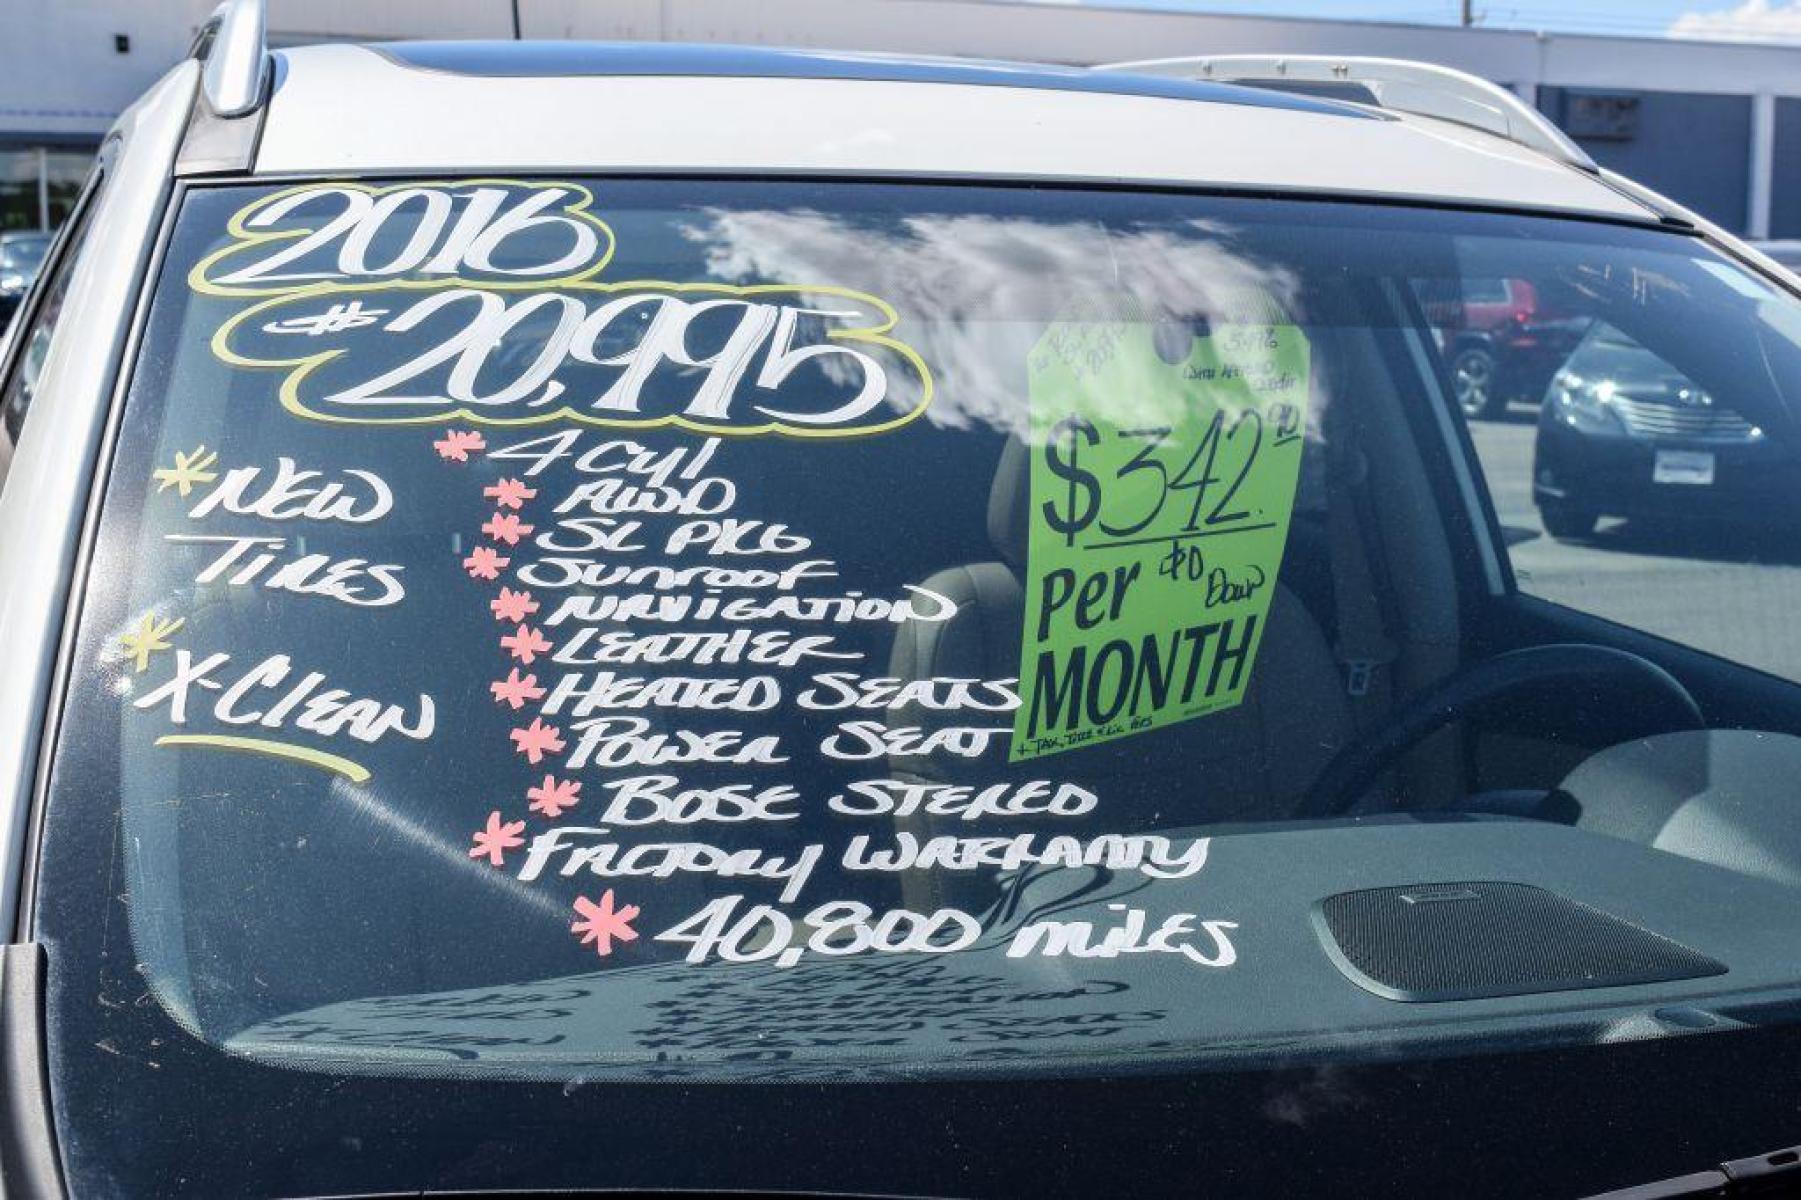 2016
$20,995
* NEW
TIRES
* X-CLEAN
* 4 CYL
* AWD
* SL PKG
* SUNROOF
* NAVIGATION
* LEATHER
* HEATED SEATS
* POWER SEAT
* BOSE STEREO
* FACTORY WARRANTY
* 40,800 MILES
WITH APPROVED
CREDIT
$342.90
Per $0
DOWN
MONTH
+ TAX, TITLE & LIC FEES